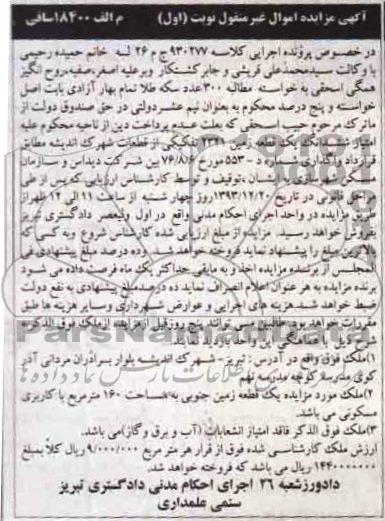 آگهی مزایده اموال غیر منقول نوبت (اول) م الف ۱۸۴۰۰سافی
در خصوص پرونده اجرایی کلاسه ۹۳۰۲۷۷ج م ۲۶ له خانم حمیده رحیمی
با وکالت سیدمحمدعلی قریشی و جابر کشتکار وبرعلیه اصغر،صفیه،روح انگیز
همگی اسحقی به خواسته مطالبه ۳۰۰عدد سکه طلا تمام بهار آزادی بابت اصل
خواسته و پنج درصد محکوم به بعنوان نیم عشردولتی در حق صندوق دولت از
ماترک مرحوم حبیب اسحقی که بعلت عدم پرداخت دین از ناحیه محکوم علیه
امتیاز ششدانگ یک قطعه زمین ۲۲۴۱ تفکیکی از قطعات شهرک اندیشه مطابق
قرارداد واگذاری شماره د - ۵۵۳ مورخ ۷۶/۸/۶ بین شرکت دیداس و سازمان
مسکن و شهرسازی ،توقیف و توسط کارشناس ارزیابی که پس از طی
مراحل قانونی در تاریخ ۱۳۹۳/۱۲/۲۰روز چهار شنبه از ساعت ۱۱ الی ۱۲ ظهراز
طریق مزایده در واحد اجرای احکام مدنی واقع در اول ولیعصر دادگستری تبریز
بفروش خواهد رسید. مزایده از مبلغ ارزیابی شده کارشناس شروع وبه کسی که
بالاترین مبلغ را پیشنهاد نماید فروخته خواهد شد. و ده درصد مبلغ پیشنهادی فی
المجلس از برنده مزایده اخذ و به مابقی حداکثر یک ماه فرصت داده می شود
برنده مزایده به هر عنوان اعلام انصراف نماید ده درصدمبلغ پیشنهادی به نفع دولت
ضبط خواهد شد.هزینه های اجرایی و عوارض شهرداری وسایر هزینه ها طبق
مقررات خواهد بود. طالبین می توانند پنج روزقبل ازمزایده ازملک فوق الذکر،از
شرح ذیل با هماهنگی این واحد بازدید نمایند.
۱)ملک فوق واقع در آدرس : تبریز- شهرک اندیشه بلوار برادران مردانی آذر
کوی مدرسه کوچه مدرسه نهم
۲)ملک مورد مزایده یک قطعه زمین جنوبی به مساحت ۱۶۰ مترمربع با کاربری
مسکونی می باشد.
۳)ملک فوق الذکر فاقد امتیاز انشعابات (آب و برق وگاز)می باشد.
ارزش ملک کارشناسی شده فوق از قرار هر متر مربع ۹/۰۰۰/۰۰۰ ریال کلاً بمبلغ
۱۴۴۰۰۰۰۰۰۰ ریال می باشد که فروخته خواهد شد.
دادورزشعبه ۲۶ اجرای احکام مدنی دادگستری تبریز
ستمی علمداری